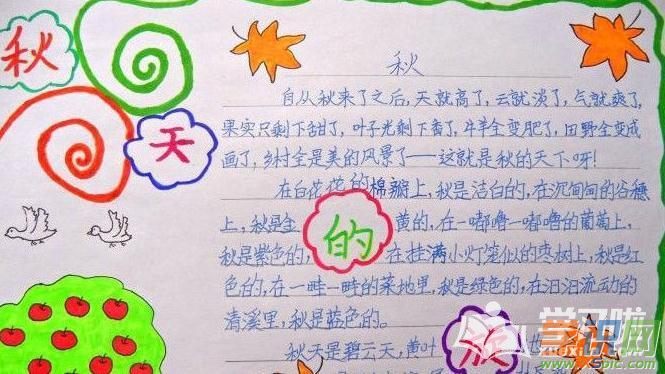 秋
天
的
秋
自从秋来了之后,天就高了,云就淡了,气就爽了,
果实只剩下甜了,叶子光剩下香了,牛羊全变肥了,田野全变成
画了,乡村全是美的风景了——这就是秋的天下呀!
在白花花的棉瓣上,秋是洁白的,在沉甸甸的谷穗
上,秋是金黄的,在一嘟噜一嘟噜的葡萄上,
秋是紫色的,在挂满小灯笼似的枣树上,秋是红
色的,在一畦一畦的菜地里,秋是绿色的,在汩汩流动的
清溪里,秋是蓝色的。
秋天是碧云天,黄叶